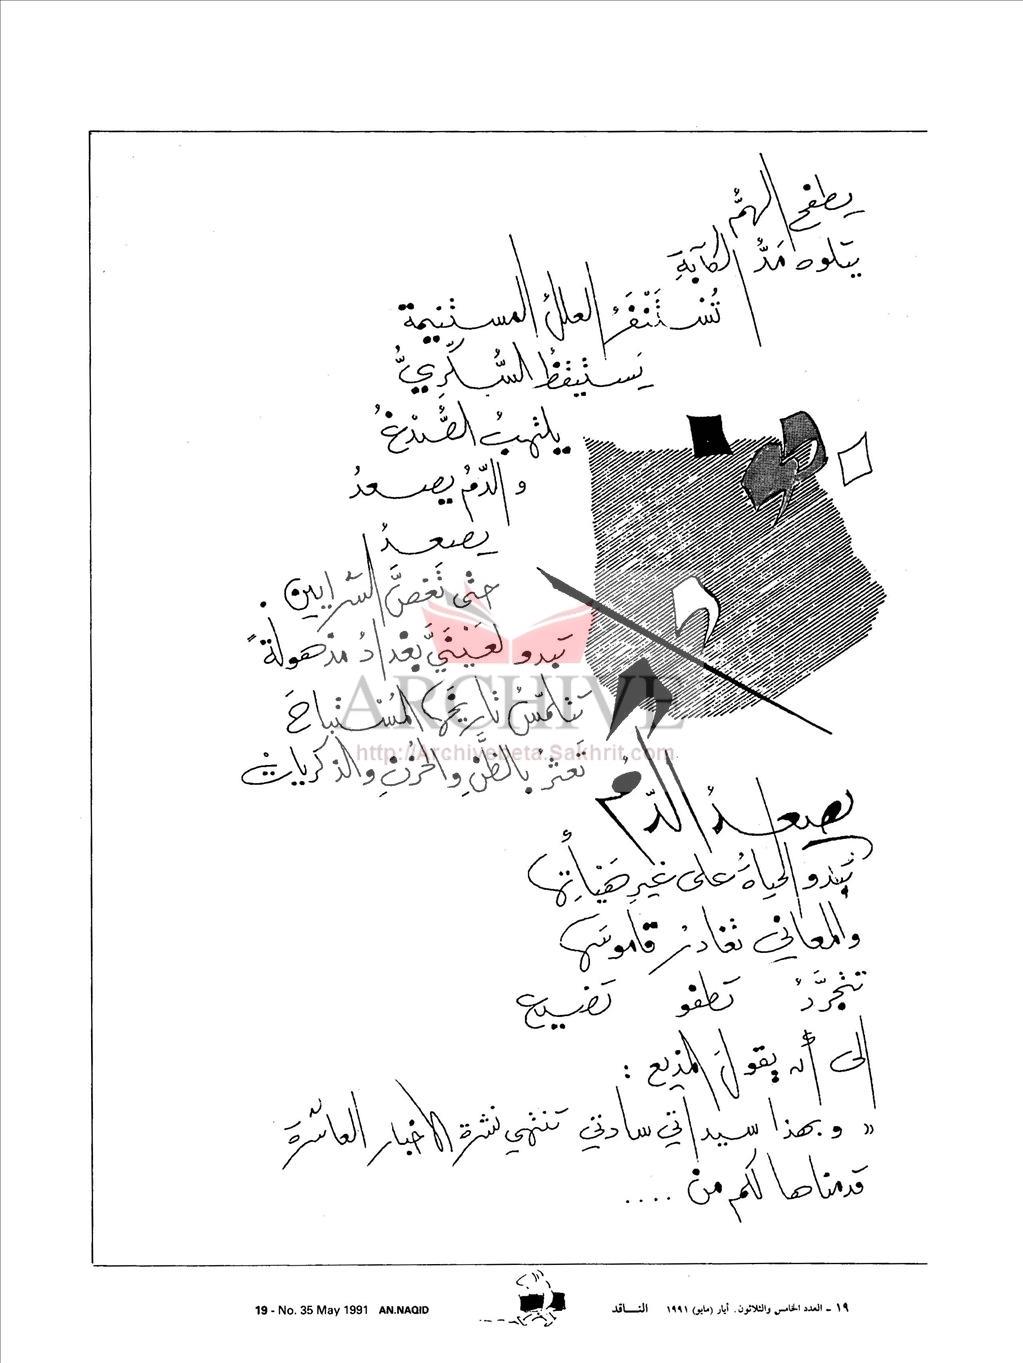 يطفح الهمُّ
يتلوه مَدُّ الكآبةِ
تُسْتَنْفَرُ العللُ المستنيمة
يَستيقظُ السُّكَّريُّ
يلتهبُ الصُّدْغُ
والدّمُ يصعدُ
يصعدُ
حتى تَغصَّ الشرايين .
تبدو لعَيْنَيَّ بغدادُ مذهولةً
تتلمّسُ تاريخَها المُسْتباحَ
تَعثرُ بالظَّنِ والحُزنِ والذكريات
يصعدُ الدّمُ
تبدو الحياةُ على غيرِ هَيْأتِها
والمعاني تغادرُ قاموسَها
تتجرَّدُ تَطفو تَضيع
الى أن يقولَ المذيع :
« وبهذا سيداتي سادتي تنتهي نشرة الاخبار العاشرة
قدمناها لكم من ....
ARCHIVE
http://Archivebeta.Sakhrit.com
١٩ - العدد الخامس والثلاثون. أيار (مايو) ١٩٩١ النـاقد
19 - No. 35 May 1991 AN.NAQID